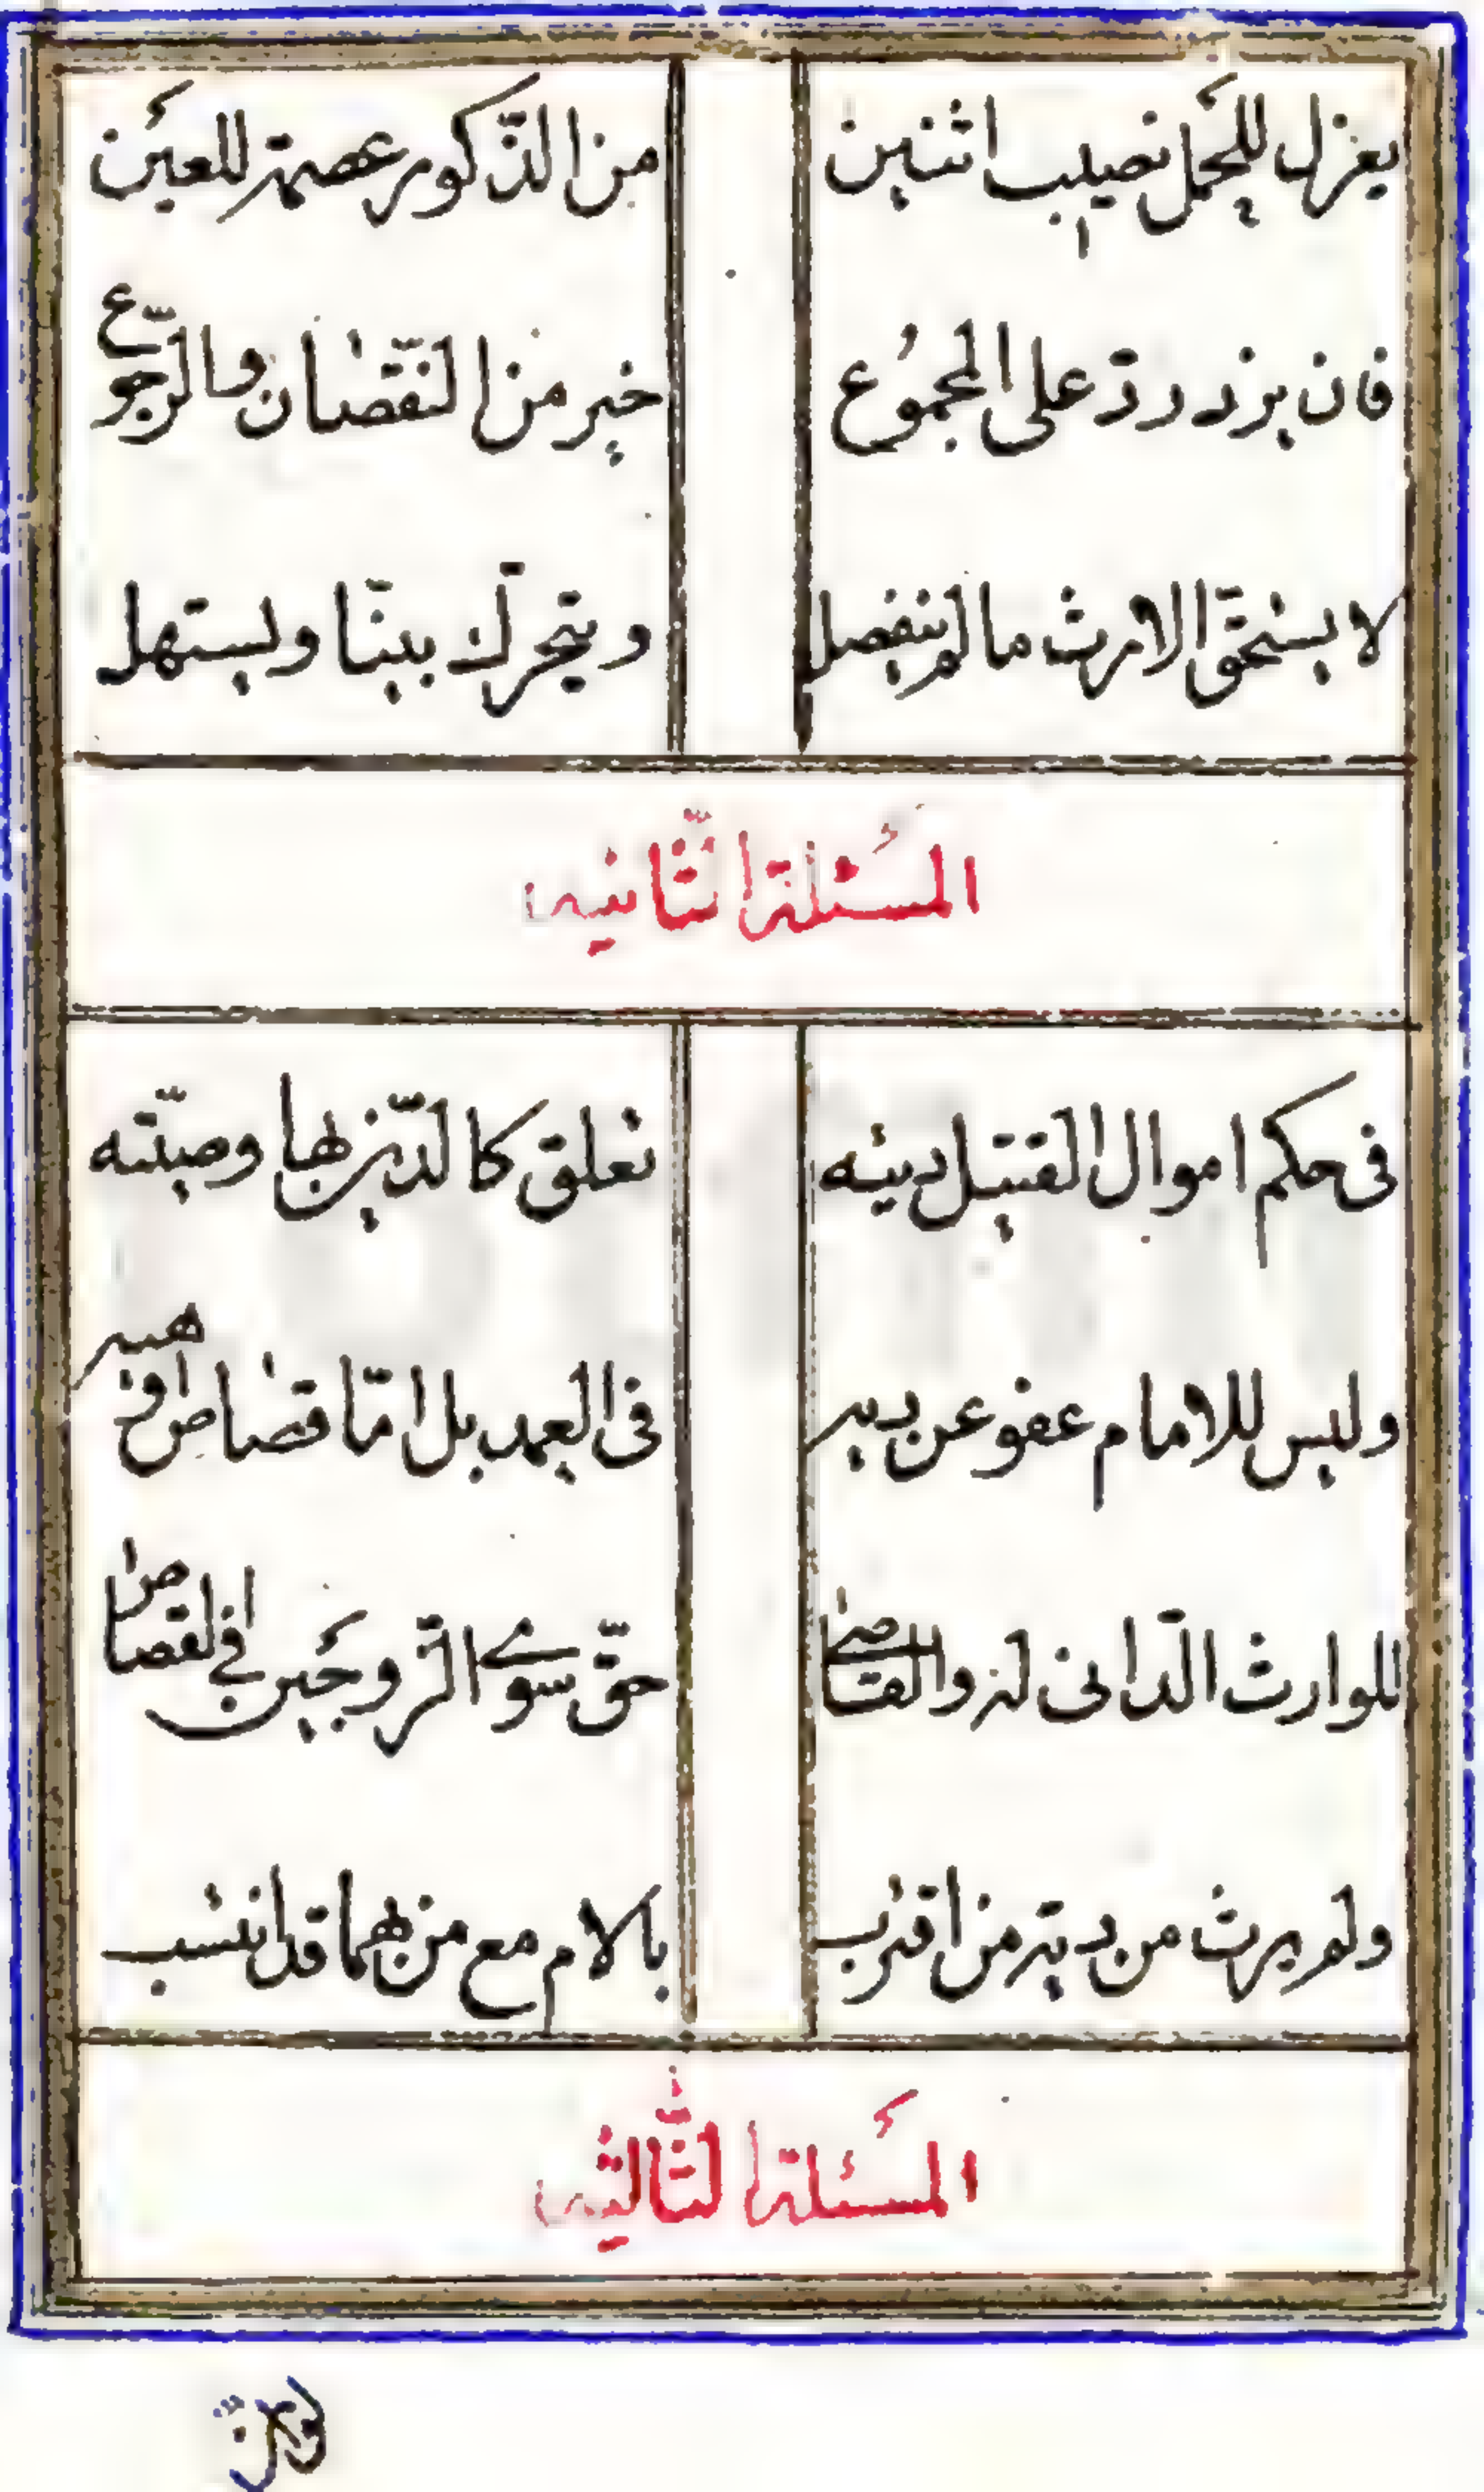 يعزل للحمل نصيب اثنين من الذّكور عصمة للعين
فان يزد ردّ على المجموع خير من النّقصان والرّجوع
لا يستحقّ الارث ما لم ينفصل ويتحرّك بيّنا ويستهل
المسئلة الثّانية
فى حكم اموال القتيل ديته تعلق كالدّين بها وصيّته
وليس للامام عفو عن ديه فى العمد بل امّا قصاص او هيه
للوارث الدّانى له والقاصى حقّ سوى الزّوجين فى القصاص
ولم يرث من دية من اقترب بالام مع من بهما قد انتسب
المسئلة الثّالثة